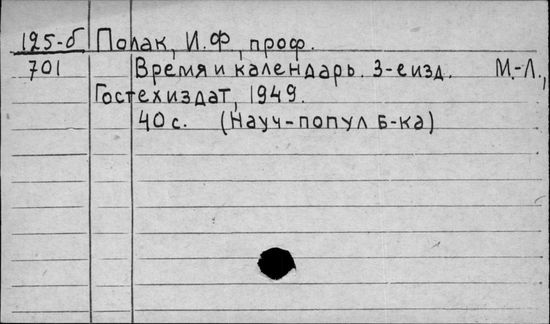 125-б Полак, И.Ф, проф.
701 Время и календарь. 3-е изд. М.-Л.,
Гостехиздат, 1949.
40 с. (Науч-попул Б-ка)